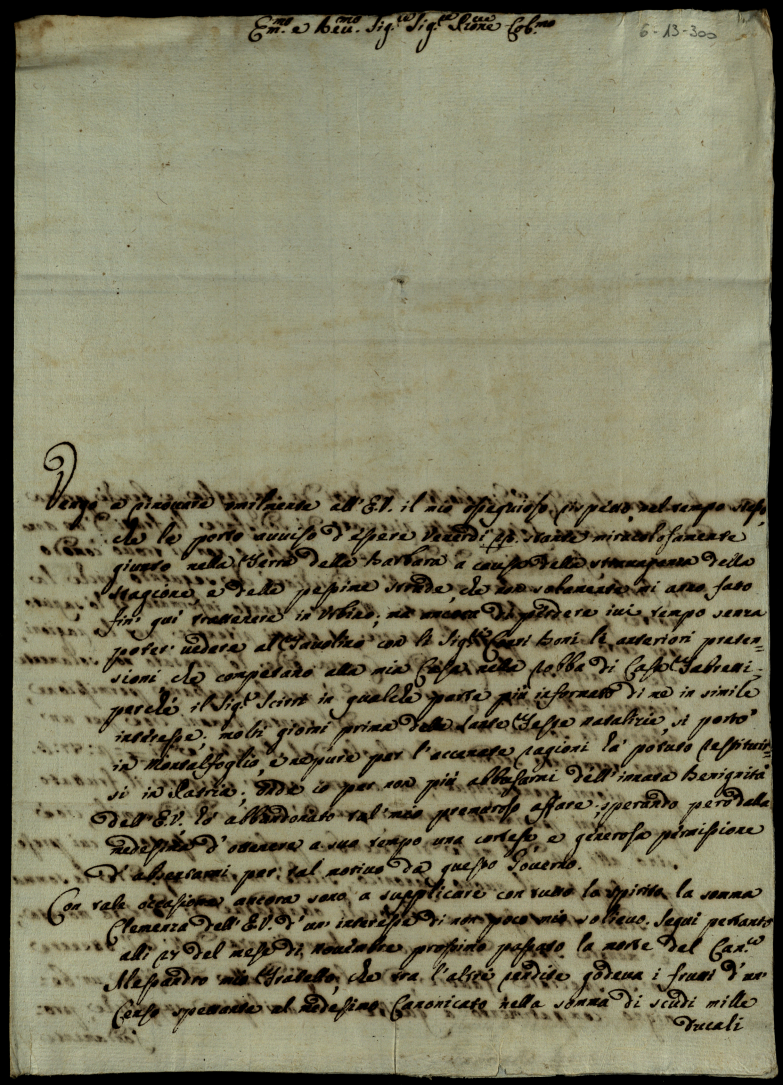 Em.mo e Reu.mo Sig.re Sig.re P.rone Col.mo
6-13-300
Vengo a rinouare umilmente all'E.V. il mio osseguioso rispetto nel tempo stesso,
che le porto auuiso d'essere Venerdi stante miracolosamente
giunto nella Terra della Barbara a causa della strauaganza della
stagione, e delle pessime strade che non solamente mi anno fatto
fin qui trattenere in Urbino; ma ancora di perdere iui tempo senza
poter uedere al Tauolino con li Sig.ri Boni le anteriori preten-
sioni che competano alla mia Casa nella robba di Casa
perche il Sig.r in qualche parte più informato di me in simile
interesse, molti giorni prima delle sante Feste natalizie, si portò
in Montalfoglio, e neppure per l'accennate ragioni hà potuto restituir-
si in Patria; onde io per non più abbusarmi dell'innata Benignità
dell'E.V. hò abbandonato tal mio premuroso affare; sperando però dalla
medesima d'ottenere a suo tempo una cortese, e generosa permissione
d'absentarmi per tal motiuo da questo Gouerno.
Con tale occasione ancora sono a supplicare con tutto lo spirito la somma
Clemenza dell'E.V. d'un' interesse di non poco mio solieuo. Seguì pertanto
alli del mese di nouembre prossimo passato la morte del Can.co
Alessandro mio Fratello, che tra l'altre rendite godeua i frutti d'un
Censo spettante al medesimo Canonicato nella somma di scudi mille
ducali